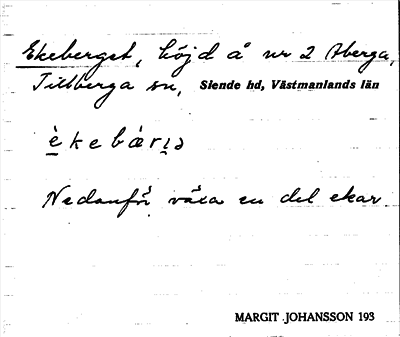 Ekeberget, höjd å nr 2 Åberga,
Tillberga sn, Siende hd, Västmanlands län
èkebærıɔ
Nedanför växa en del ekar
MARGIT JOHANSSON 193